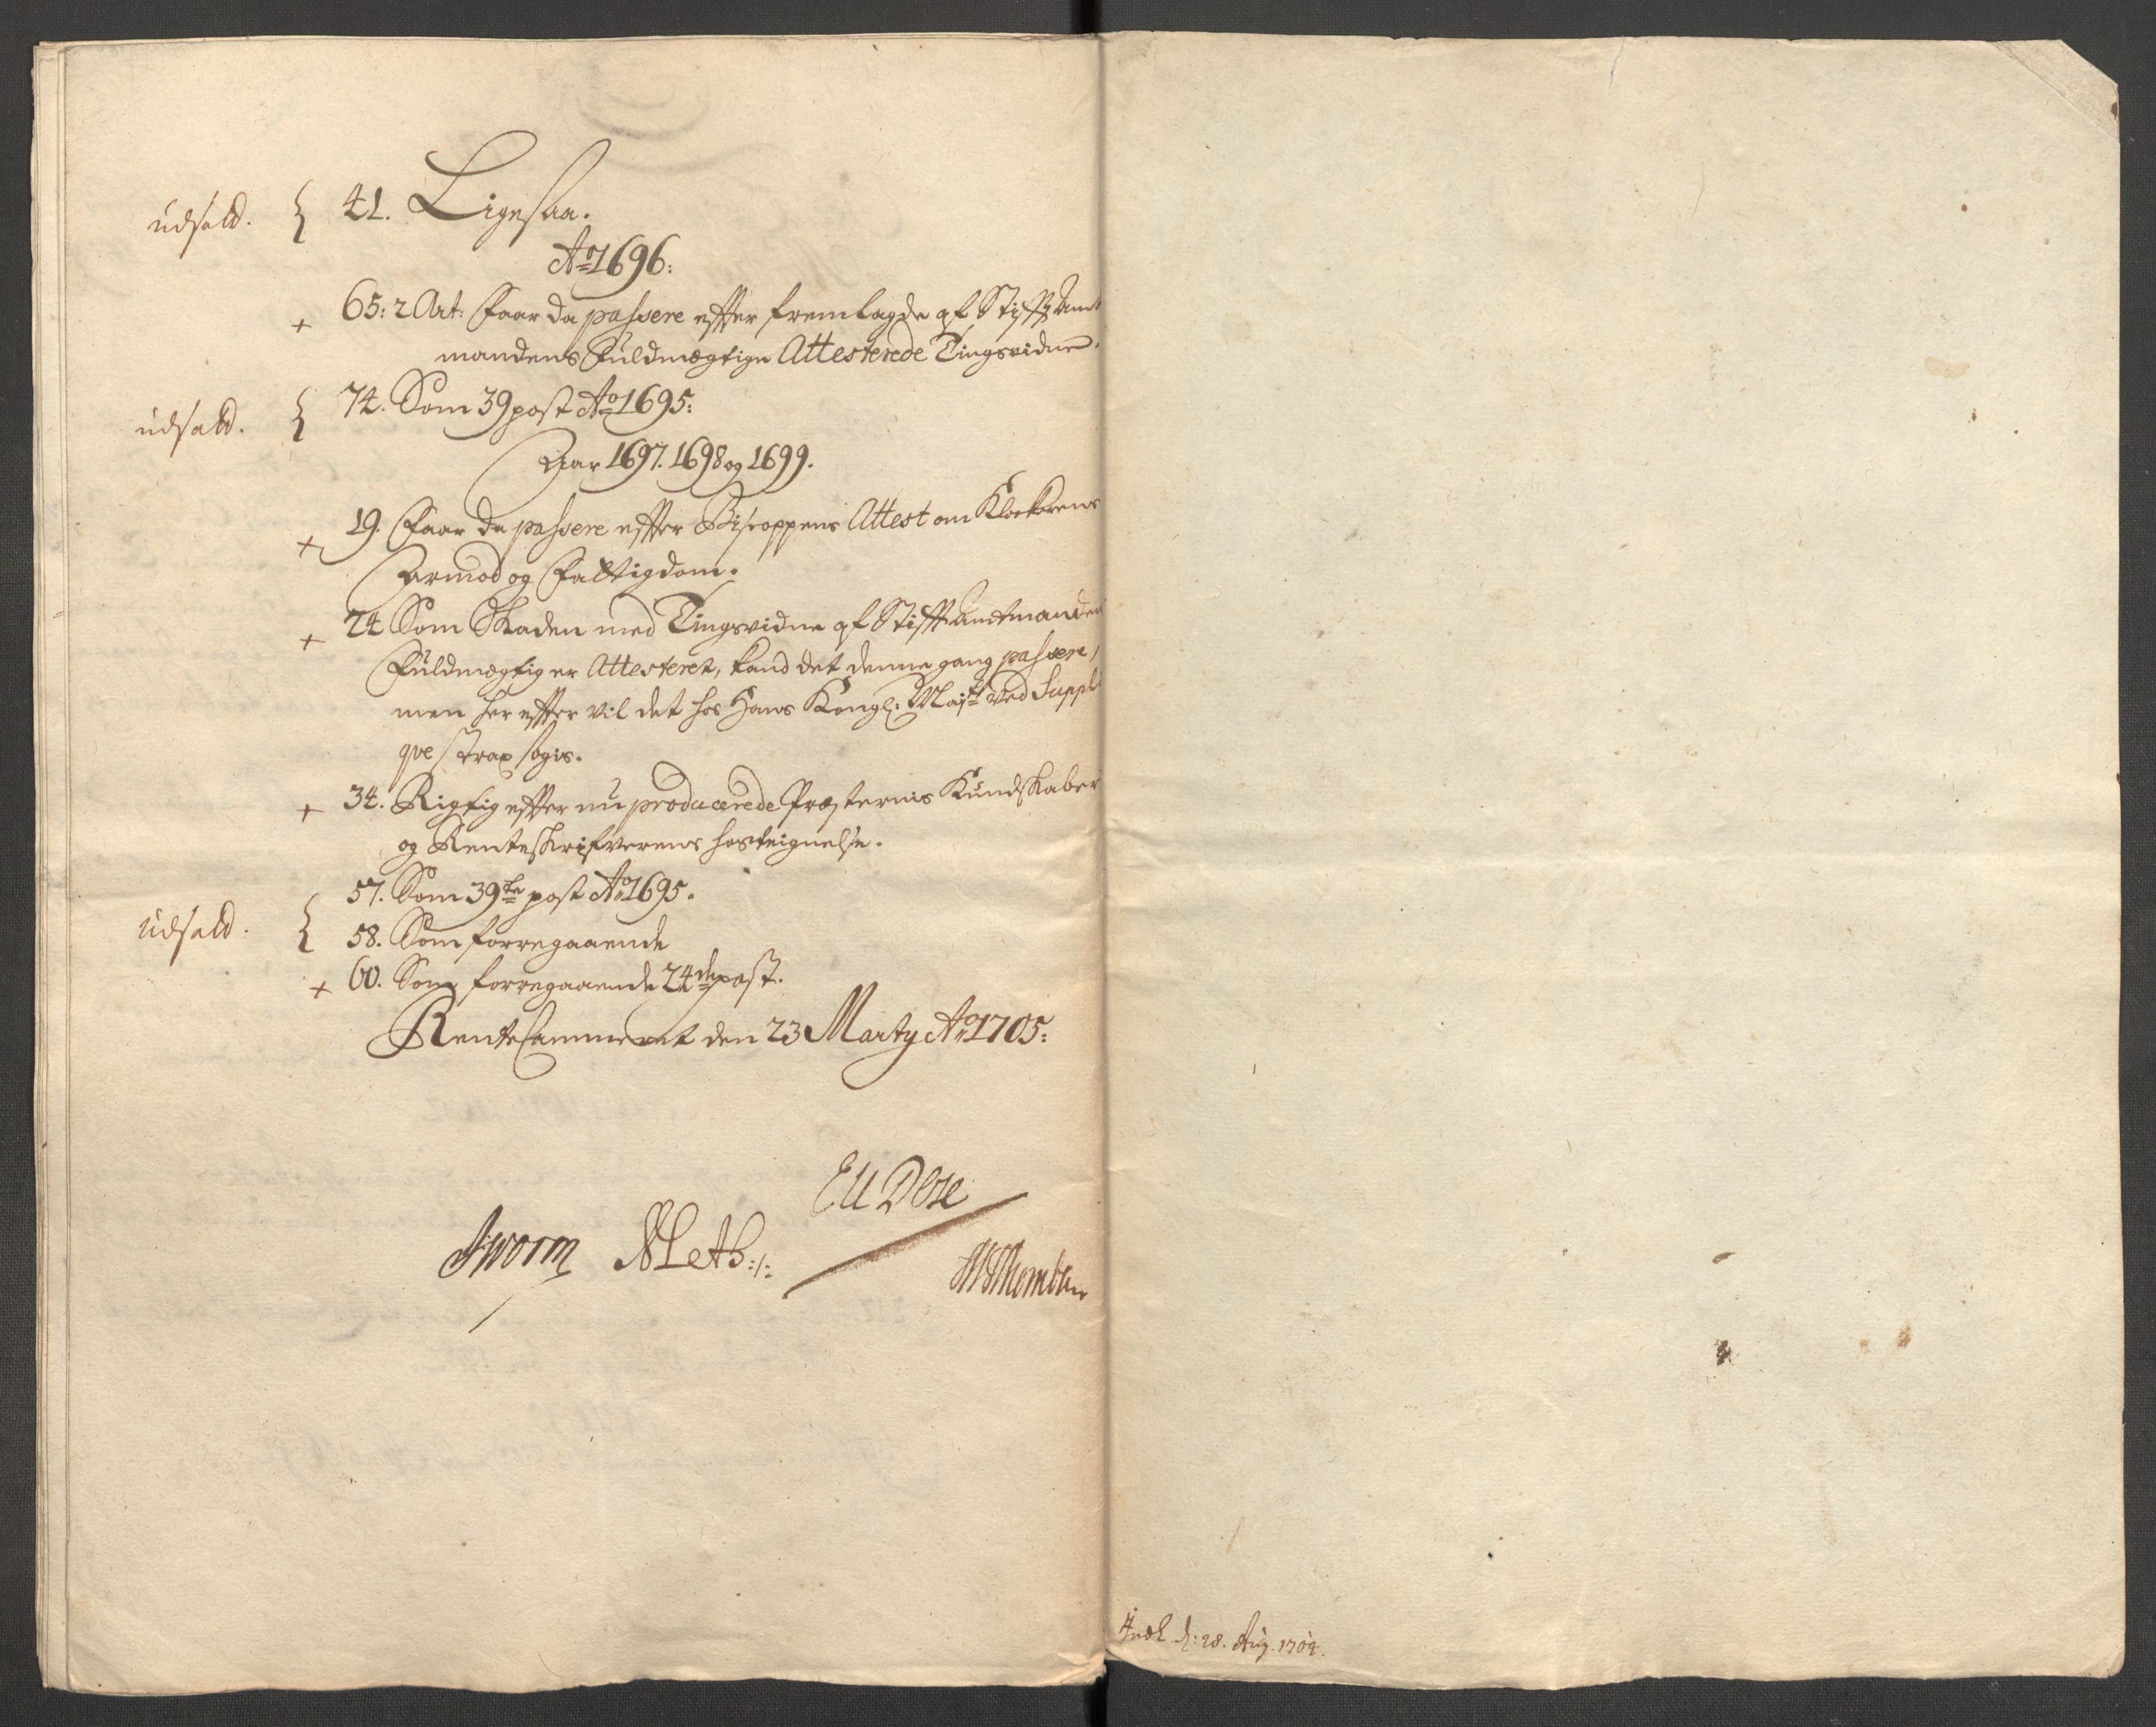 udsatt. { 41. Ligesaa.
Ao 1696:
+ 65: 2 Art: Faar da passere effter fremlagde af Stifft Amt
mandens Fuldmægtige Attesterede Tingsvidne.
udsatt. { 74. Som 39 post Ao 1695:
Aar 1697. 1698 og 1699.
+ 19. Faar da passere effter Biscoppens Attest om Klockerens
Armod og Fattigdom.
+ 24 Som Skaden med Tingsvidne af Stifft Amtmanden
Fuldmægtig er Attesteret, kand det denne gang passere,
men her effter vil det hos Hans Kongl: Mayt ved Suppli
qve strax søgis.
+ 34. Rigtig effter nu producerede Præsternis Kundskaber
og Renteskrifverens hosteignelse.
57. Som 39te post Ao 1695.
udsatt. { 58. Som forregaaende
+ 60. Som forregaaende 24de post.
RenteCammeret den 23 Marty Ao 1705:
Worm
d: 28. Aug. 1704.